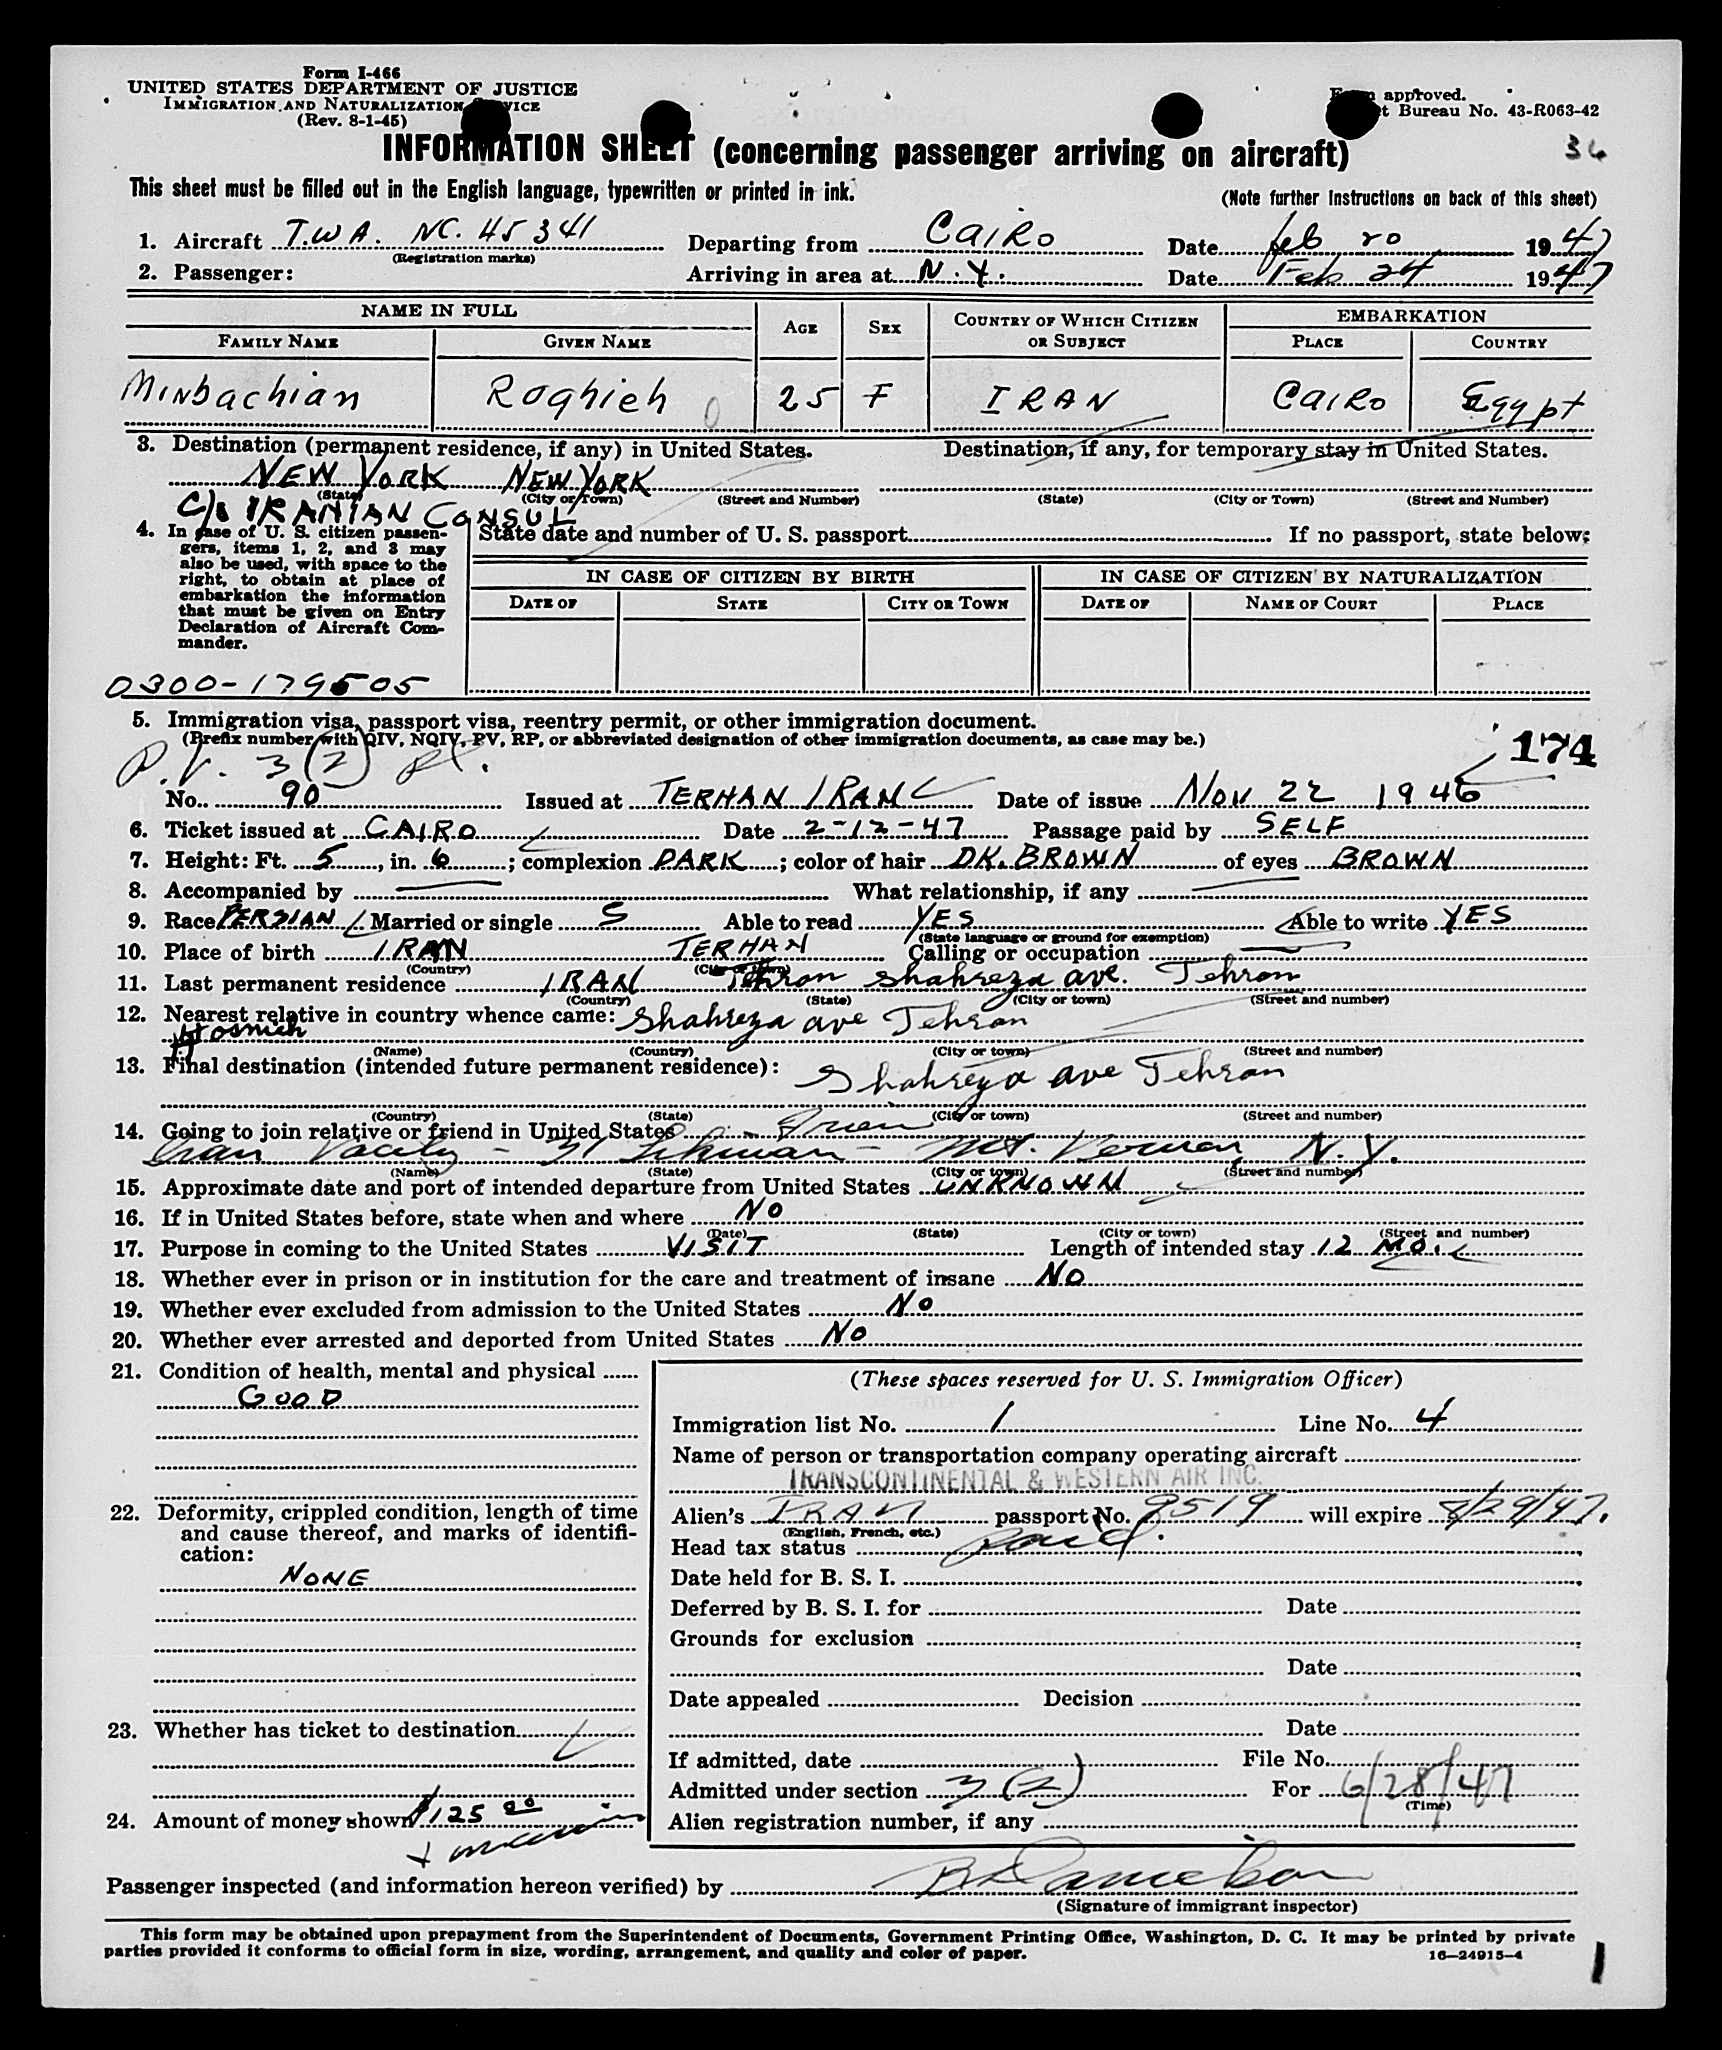 Form I-466
UNITED STATES DEPARTMENT OF JUSTICE
IMMIGRATION AND NATURALIZATION SERVICE
(Rev. 8-1-45)
Form approved.
Budget Bureau No. 43-R063-42
36
INFORMATION SHEET (concerning passenger arriving on aircraft)
This sheet must be filled out in the English language, typewritten or printed in ink.
(Note further instructions on back of this sheet)
1. Aircraft T.W.A. NC. 45341 Departing from Cairo Date feb 20 1947
(Registration marks)
2. Passenger: Arriving in area at N.Y. Date Feb 24 1947
NAME IN FULL AGE SEX COUNTRY OF WHICH CITIZEN OR SUBJECT EMBARKATION
FAMILY NAME GIVEN NAME PLACE COUNTRY
Minbachian Roghieh 25 F IRAN CAIRO Egypt
3. Destination (permanent residence, if any) in United States. Destination, if any, for temporary stay in United States.
NEW YORK NEW YORK
(State) (City or Town) (Street and Number) (State) (City or Town) (Street and Number)
C/o IRANIAN CONSUL
4. In case of U. S. citizen passen-
gers, items 1, 2, and 3 may
also be used, with space to the
right, to obtain at place of
embarkation the information
that must be given on Entry
Declaration of Aircraft Com-
mander.
State date and number of U. S. passport If no passport, state below:
IN CASE OF CITIZEN BY BIRTH IN CASE OF CITIZEN BY NATURALIZATION
DATE OF STATE CITY OR TOWN DATE OF NAME OF COURT PLACE
0300-179505
5. Immigration visa, passport visa, reentry permit, or other immigration document.
(Prefix number with QIV, NQIV, PV, RP, or abbreviated designation of other immigration documents, as case may be.)
174
P.V. 3(2)
No. 90 Issued at TERHAN IRAN Date of issue Nov 22 1946
6. Ticket issued at CAIRO Date 2-12-47 Passage paid by SELF
7. Height: Ft. 5, in. 6; complexion DARK; color of hair DK. BROWN of eyes BROWN
8. Accompanied by What relationship, if any
9. Race PERSIAN Married or single S Able to read YES Able to write YES
(State language or ground for exemption)
10. Place of birth IRAN TERHAN Calling or occupation
(Country) (City or town)
11. Last permanent residence IRAN Tehran shahreza ave. Tehran
(Country) (State) (City or town) (Street and number)
12. Nearest relative in country whence came: Shahreza ave Tehran
(Name) (Country) (City or town) (Street and number)
13. Final destination (intended future permanent residence): Shahreza ave Tehran
(Country) (State) (City or town) (Street and number)
14. Going to join relative or friend in United States
Mt. Vernon N.Y.
(Name) (State) (City or town) (Street and number)
15. Approximate date and port of intended departure from United States UNKNOWN
16. If in United States before, state when and where No
(Date) (State) (City or town) (Street and number)
17. Purpose in coming to the United States VISIT Length of intended stay 12 MO.
18. Whether ever in prison or in institution for the care and treatment of insane No
19. Whether ever excluded from admission to the United States No
20. Whether ever arrested and deported from United States No
21. Condition of health, mental and physical
GOOD
22. Deformity, crippled condition, length of time
and cause thereof, and marks of identifi-
cation:
NONE
23. Whether has ticket to destination
24. Amount of money shown $125 00
(These spaces reserved for U. S. Immigration Officer)
Immigration list No. 1 Line No. 4
Name of person or transportation company operating aircraft
TRANSCONTINENTAL & WESTERN AIR INC.
Alien's IRAN passport No. 9519 will expire 8/29/47.
(English, French, etc.)
Head tax status paid.
Date held for B. S. I.
Deferred by B. S. I. for Date
Grounds for exclusion
Date
Date appealed Decision
Date
If admitted, date File No.
Admitted under section 3(2) For 6/28/47
(Time)
Alien registration number, if any
Passenger inspected (and information hereon verified) by
(Signature of immigrant inspector)
This form may be obtained upon prepayment from the Superintendent of Documents, Government Printing Office, Washington, D. C. It may be printed by private
parties provided it conforms to official form in size, wording, arrangement, and quality and color of paper.
16—24915-4
1